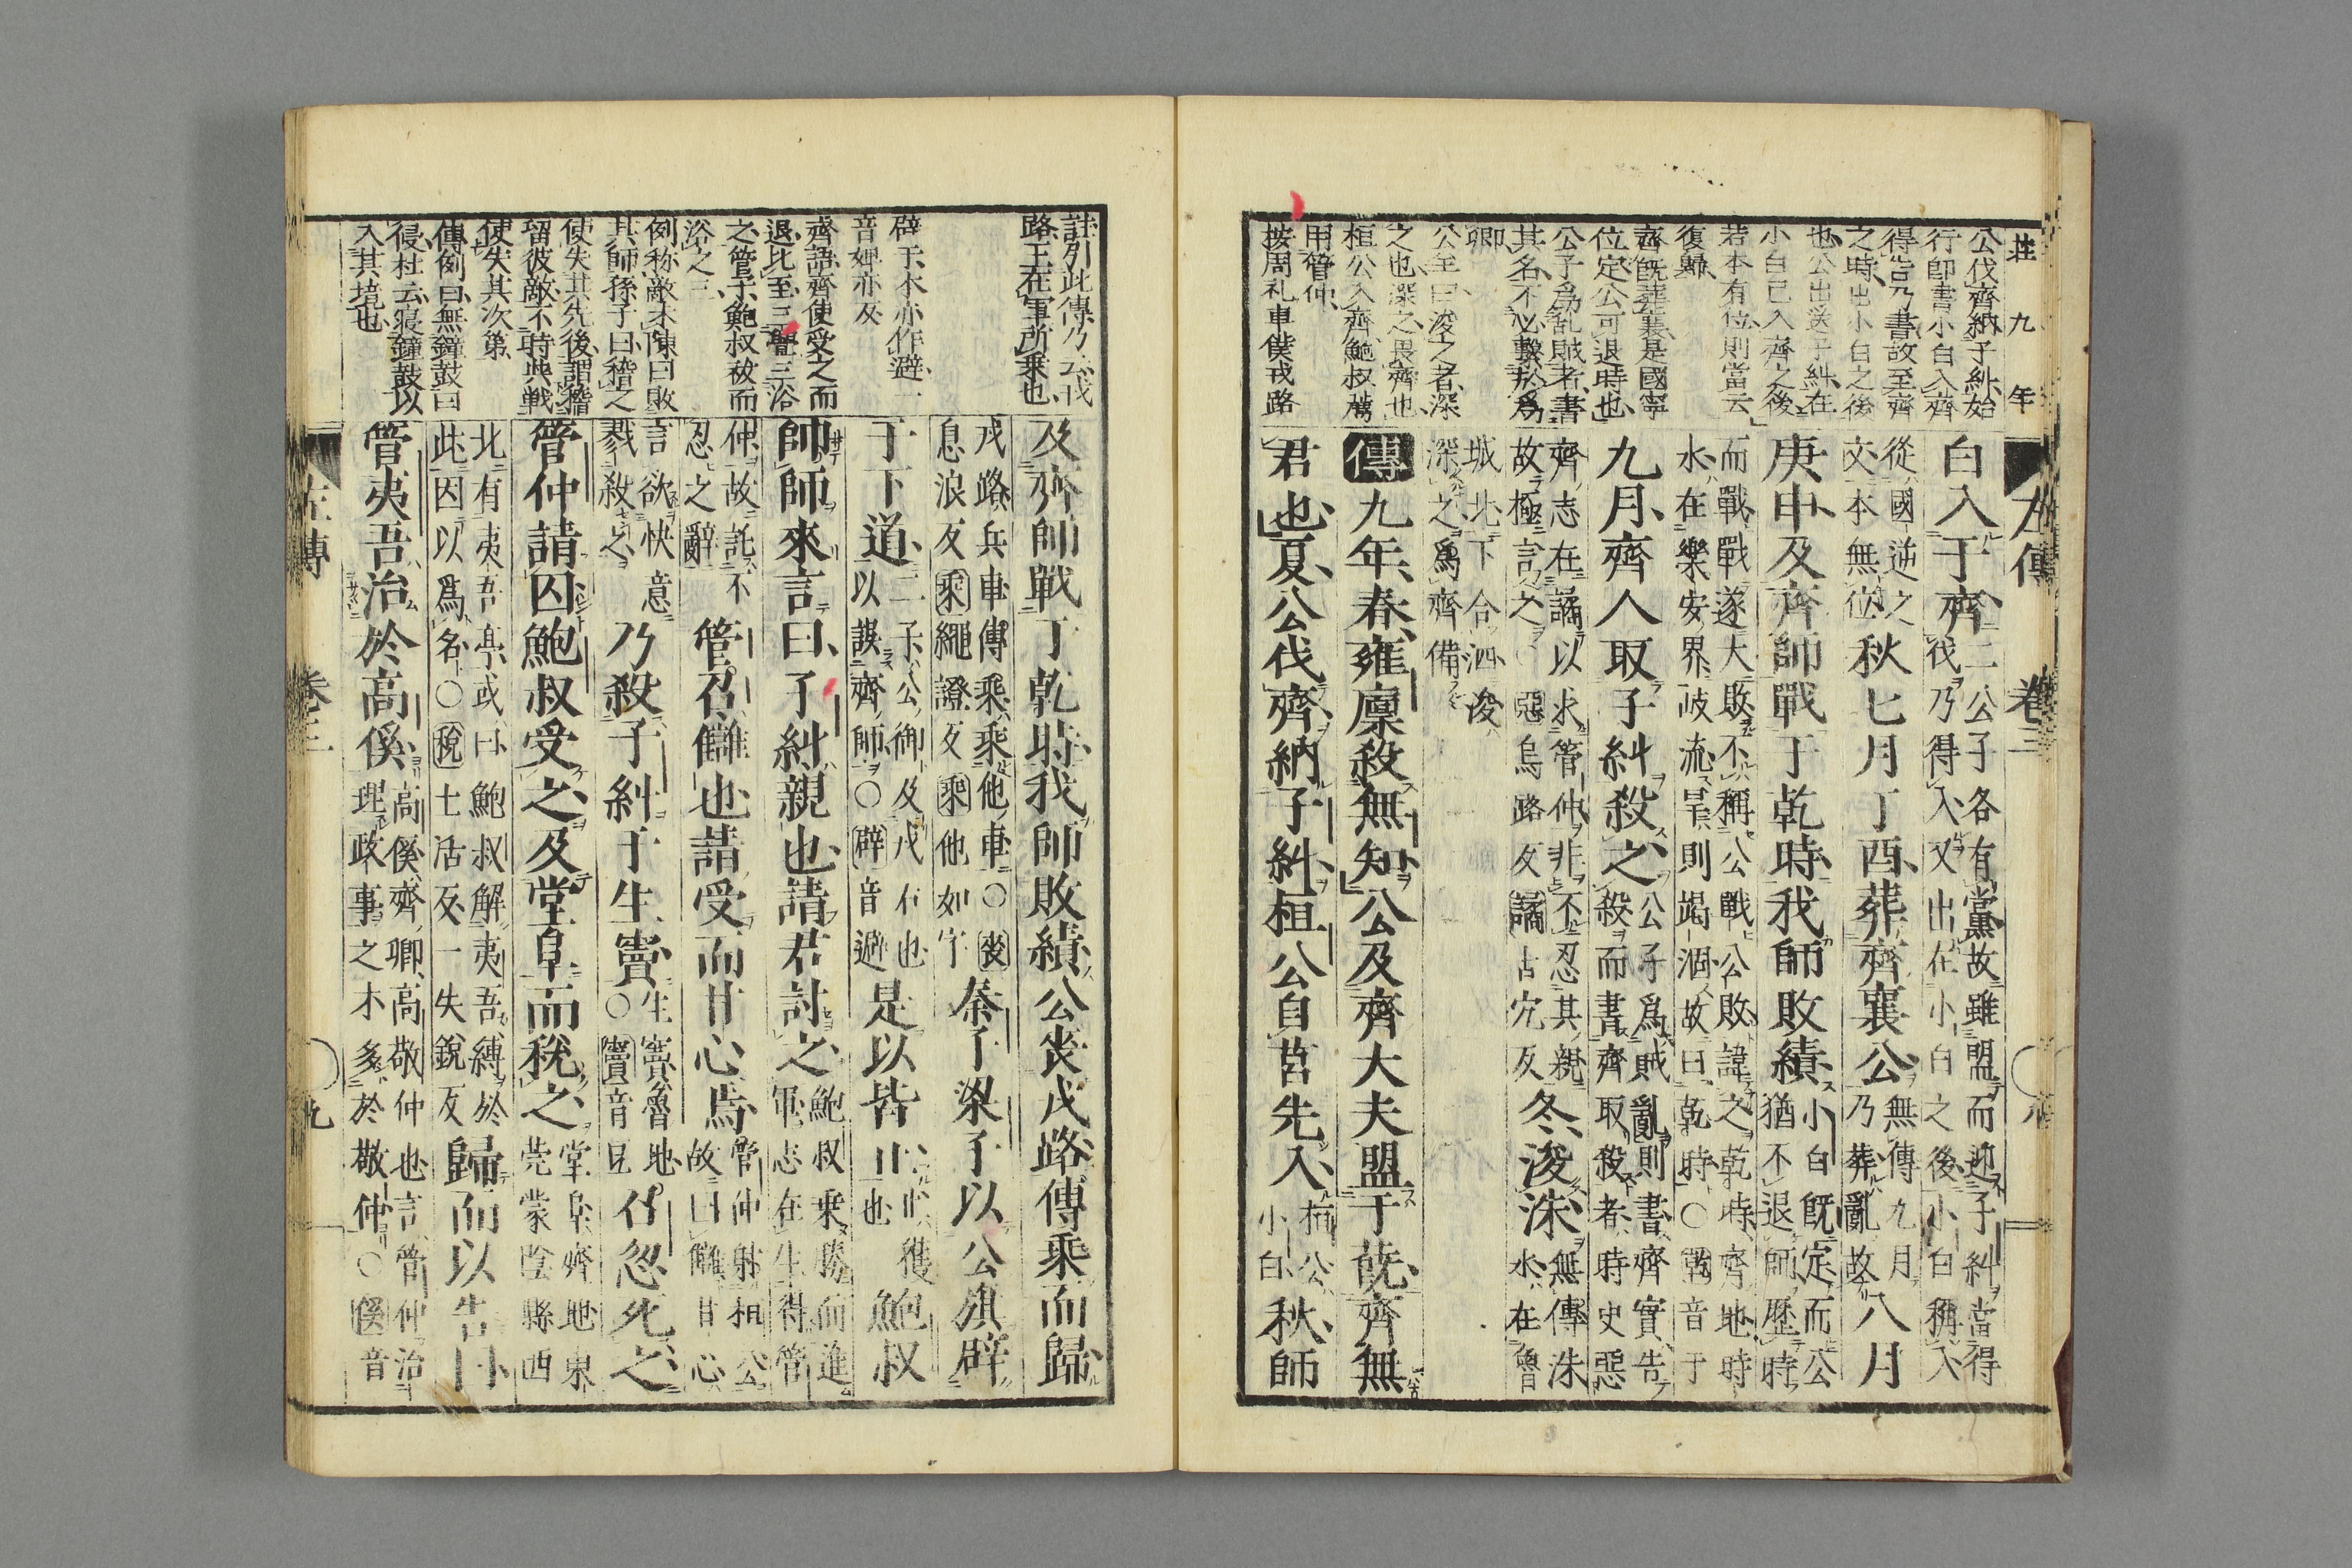 莊九年
左傳 卷三
公伐齊納子糾始
行卽書小白入齊
得告乃書故至齊
之時出小白之後
也公出送子糾在
小白已入齊之後
若本有位則當云
復歸
齊既葬襄是國寧
位定公可退時也
公子爲乱賊者書
其名不必繫於爲
卿
公至曰浚之者深
之也深之畏齊也
桓公入齊鮑叔薦
用管仲
按周礼車僕戎路
白入于齊二公子各有黨故雖盟而迎子糾當得
伐乃得入又出在小白之後小白稱入
從國逆之
文本無位秋七月丁酉葬齊襄公無傳九月
乃葬亂故八月
庚申及齊師戰于乾時我師敗績小白既定而公
猶不退師歷時
而戰戰遂大敗不稱公戰公敗諱之乾時齊地時
水在樂安界岐流旱則竭涸故曰乾時○乾音干
九月齊人取子糾殺之公子爲賊亂則書齊實告
殺而書齊取殺者時史惡
齊志在譎以求管仲非不忍其親
故極言之○惡烏路反譎古穴反冬浚洙無傳洙
水在魯
城北下合泗浚
深之爲齊備
傳九年春雍廩殺無知公及齊大夫盟于蔇齊無
君也夏公伐齊納子糾桓公自莒先入桓公
小白秋師
註列此傳久云戎
路王在軍所乗也
辟于本亦作避一
音婢亦反
齊語齊使受之而
退比至三舋三浴
之管子鮑叔祓而
浴之三
例称敵未陳曰敗
其師孫子曰稽之
使失其先後謂稽
留彼敵不時共戦
使失其次第
傳例曰無鐘鼓曰
侵杜云寝鐘鼓以
入其境也
及齊師戰于乾時我師敗績公喪戎路傳乘而歸
戎路兵車傳乘乘他車○喪
息浪反乘繩證反乘他如字秦子梁子以公旗辟
于下道二子公御及戎右也
以誤齊師○辟音避是以皆止止獲
也鮑叔
帥師來言曰子糾親也請君討之鮑叔乗勝而進
軍志在生得管
仲故託不
忍之辭管召讎也請受而甘心焉管仲射桓公
故曰讎甘心
言欲快意
戮殺之乃殺子糾于生竇生竇魯地
○竇音豆召忽死之
管仲請囚鮑叔受之及堂阜而稅之堂阜齊地東
莞蒙陰縣西
北有夷吾亭或曰鮑叔解夷吾縛於
此因以爲名○稅士活反一失銳反歸而以告曰
管夷吾治於高傒高傒齊卿高敬仲也言管仲治
理政事之才多於敬仲○傒音
左傳 卷三 九